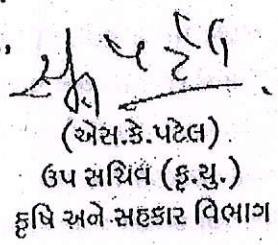 (એસ.કે.પટેલ)
ઉપ સચિવ (કૃ.યુ.)
કૃષિ અને સહકાર વિભાગ